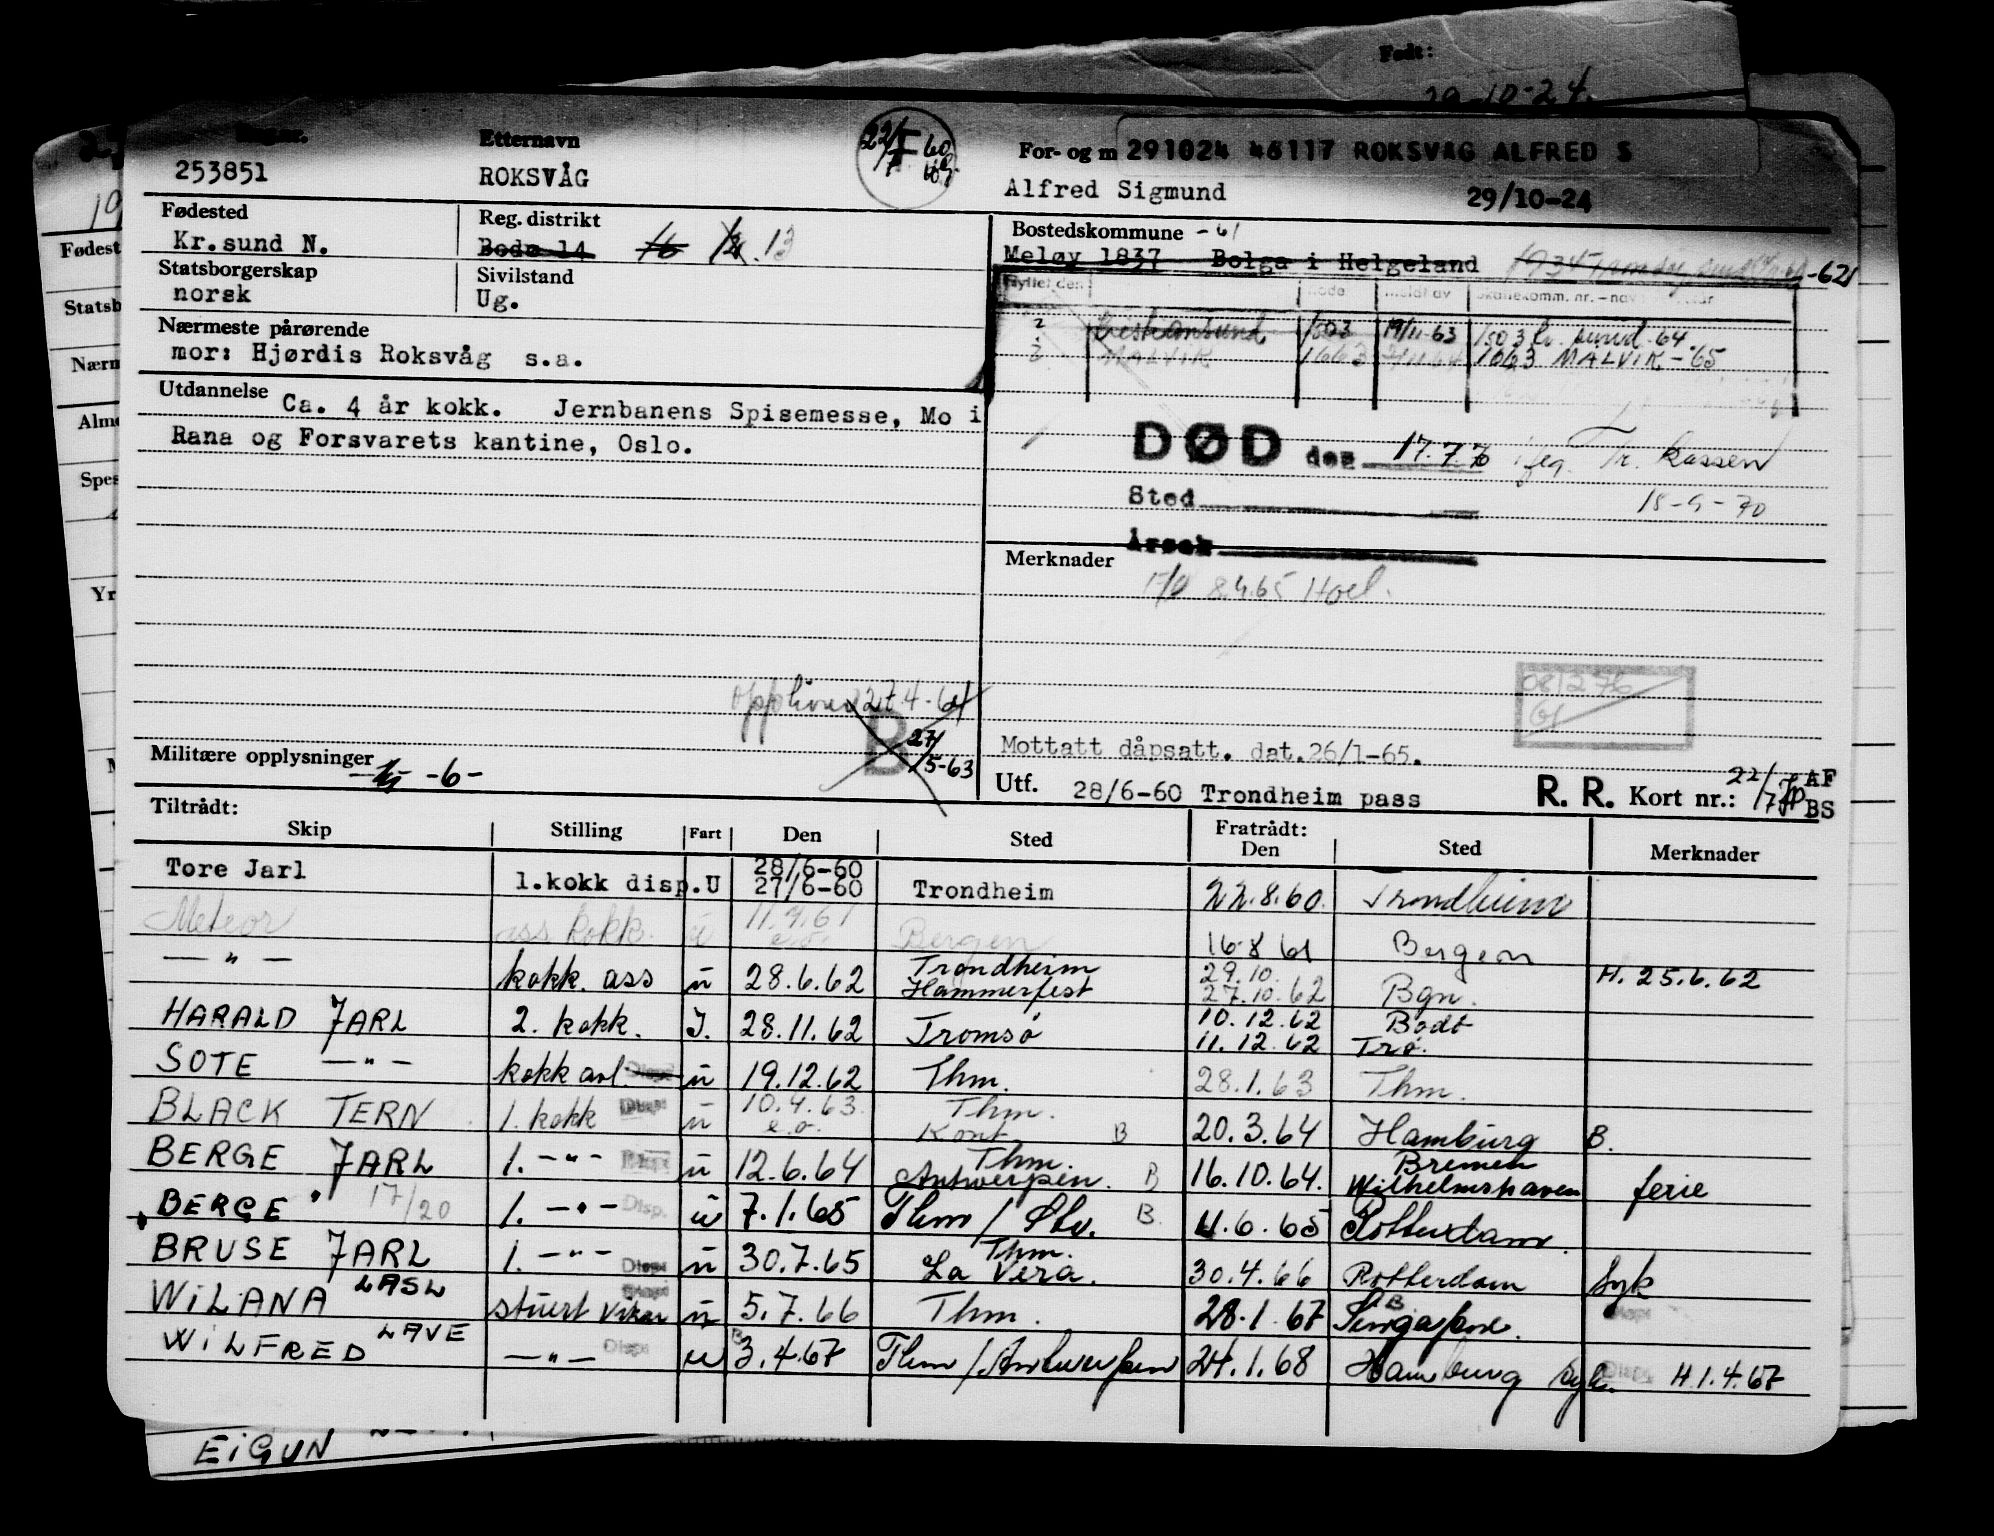 Født:
29-10-24
Etternavn
22/7 60
For- og m 291024 46117 ROKSVAG ALFRED S
253851
ROKSVÅG
Alfred Sigmund
29/10-24
Fødested
Reg. distrikt
Bostedskommune -61
Kr.sund N.
Bodø 14
13
Meløy 1837 Bolga i Helgeland
-62
Statsborgerskap
Sivilstand
norsk
Ug.
Flyttet den
Kristiansund 1503 19/11-63 1503 Kr. sund -64
MALVIK 1663
1663 MALVIK -65
Nærmeste pårørende
mor: Hjørdis Roksvåg s.a.
Utdannelse Ca. 4 år kokk. Jernbanens Spisemesse, Mo i
Rana og Forsvarets kantine, Oslo.
DØD den 17.7.70 Tr. kassen
Sted
18-9-70
Årsak
Merknader
8.4.65 Hoel.
Opphevet 27.4-64
B
27/5-63
081276
61
Mottatt dåpsatt. dat.26/1-65.
Militære opplysninger
-6-
Utf. 28/6-60 Trondheim pass
R. R. Kort nr.:
22/7
AF
BS
Tiltrådt:
Skip Stilling Fart Den Sted Fratrådt: Den Sted Merknader
Tore Jarl 1.kokk disp. U 28/6-60 27/6-60 Trondheim 22.8.60. Trondheim
Meteor ass kokk. u 11.4.61 e.o. Bergen 16-8 61 Bergen
— " — kokk. ass u 28.6.62 Trondheim Hammerfest 29.10. 27.10.62 Bgn. H. 25.6.62
HARALD JARL 2. kokk. I. 28.11.62 Tromsø 10.12.62 11.12.62 Bodø Trø.
SOTE — " — kokk avl. Disp u 19.12.62 Thm. 28.1.63 Thm.
BLACK TERN 1. kokk Disp u 10.4.63. e.o. Thm. Kont B 20.3.64 Hamburg B.
BERGE JARL 1. — " — Disp u 12.6.64 Thm. Antwerpen. B 16.10.64. Bremen Wilhelmshaven ferie
BERGE " 17/20 1. — " — Disp. u 7.1.65 Thm / Sbv. B. 4.6.65 Rotterdam.
BRUSE JARL 1. — " — Disp u 30.7.65 Thm. La Vera. 30.4.66 Rotterdam syk
WILANA LASL stuert vikar Disp u 5.7.66 Thm. 28.1.67 B Singapore. Disp
WILFRED LAVE — " — Disp u B 3.4.67 Thm / Antwerpen 24.1.68 Hamburg syk. Disp H.1.4.67
EIGUN